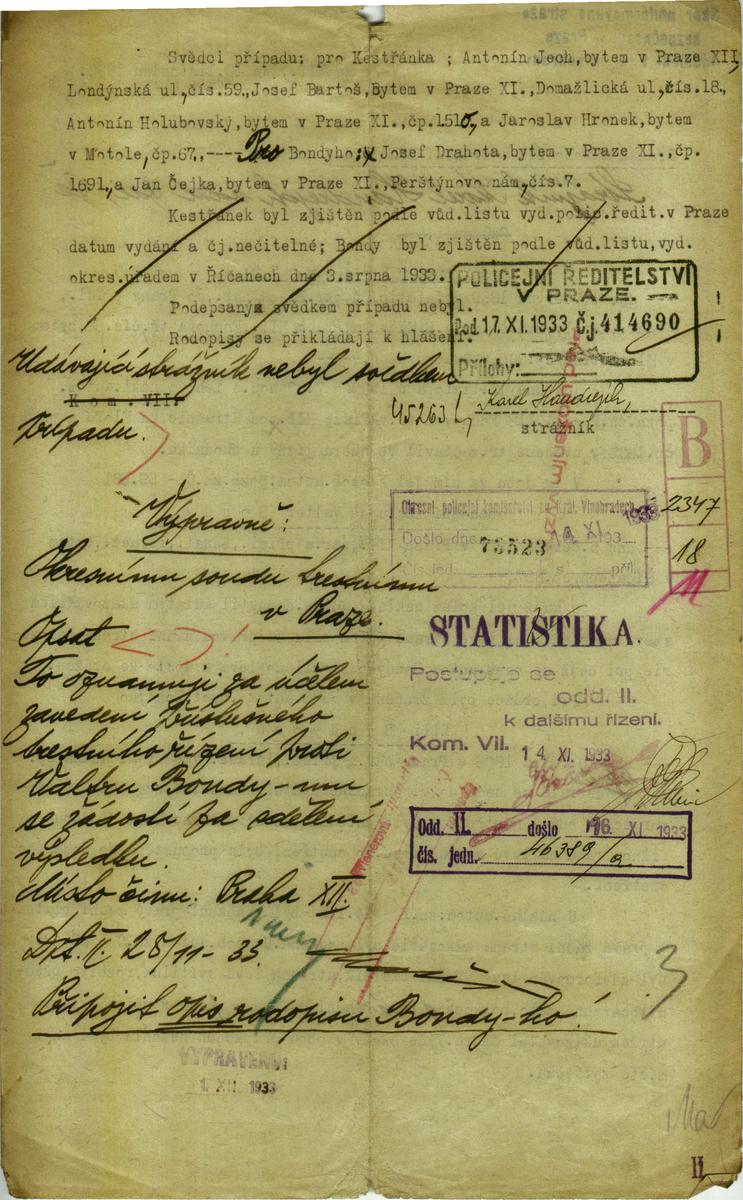 Svědci případu: pro Kestřánka ; Antonín Jech,bytem v Praze XII,
Londýnská ul,čís.59.,Josef Bartoš,bytem v Praze XI.,Domažlická ul,čís.18.,
Antonín Holubovský,bytem v Praze XI.,čp.1515,a Jaroslav Hronek,bytem
v Motole,čp.67,.---- Pro Bondyho: Josef Drahota, bytem v Praze XI.,čp.
1691.,a Jan Čejka,bytem v Praze XI.,Perštýnovo nám,čís.7.
Kestřánek byl zjištěn podle vůd.listu vyd.polic.ředit.v Praze
datum vydání a čj.nečitelné; Bondy byl zjištěn podle vůd.listu,vyd.
okres.úřadem v Říčanech dne 3.srpna 1933.
Podepsaný svědkem případu nebyl.
Rodopisy se přikládají k hlášení.
POLICEJNÍ ŘEDITELSTVÍ
V PRAZE.
Dod. 17. XI. 1933 Č.j. 414690
Přílohy:
Udávající strážník nebyl svědkem
Kom. VII.
případu.
45263
Karel
strážník
B
2347
18
11
Okresní policejní komisařství na Král. Vinohradech
Došlo dne 14 XI 1933
76523
čís. jed. s příl.
Výpravně:
Okresnímu soudu trestnímu
v Praze.
Opsat < > !
To oznamuji za účelem
zavedení příslušného
trestního řízení proti
Valtru Bondy-mu
se žádostí za sdělení
výsledku.
Místo činu: Praha XII.
STATISTIKA.
Postupuje se
odd. II.
k dalšímu řízení.
Kom. VII. 14 XI. 1933
Odd. II. došlo 16 XI. 1933
čís. jedn. 46389/a
Odd. II. 28/11 - 33.
3
Připojit opis rodopisu Bondy-ho!
VYPRAVENO!
1. XII. 1933
II